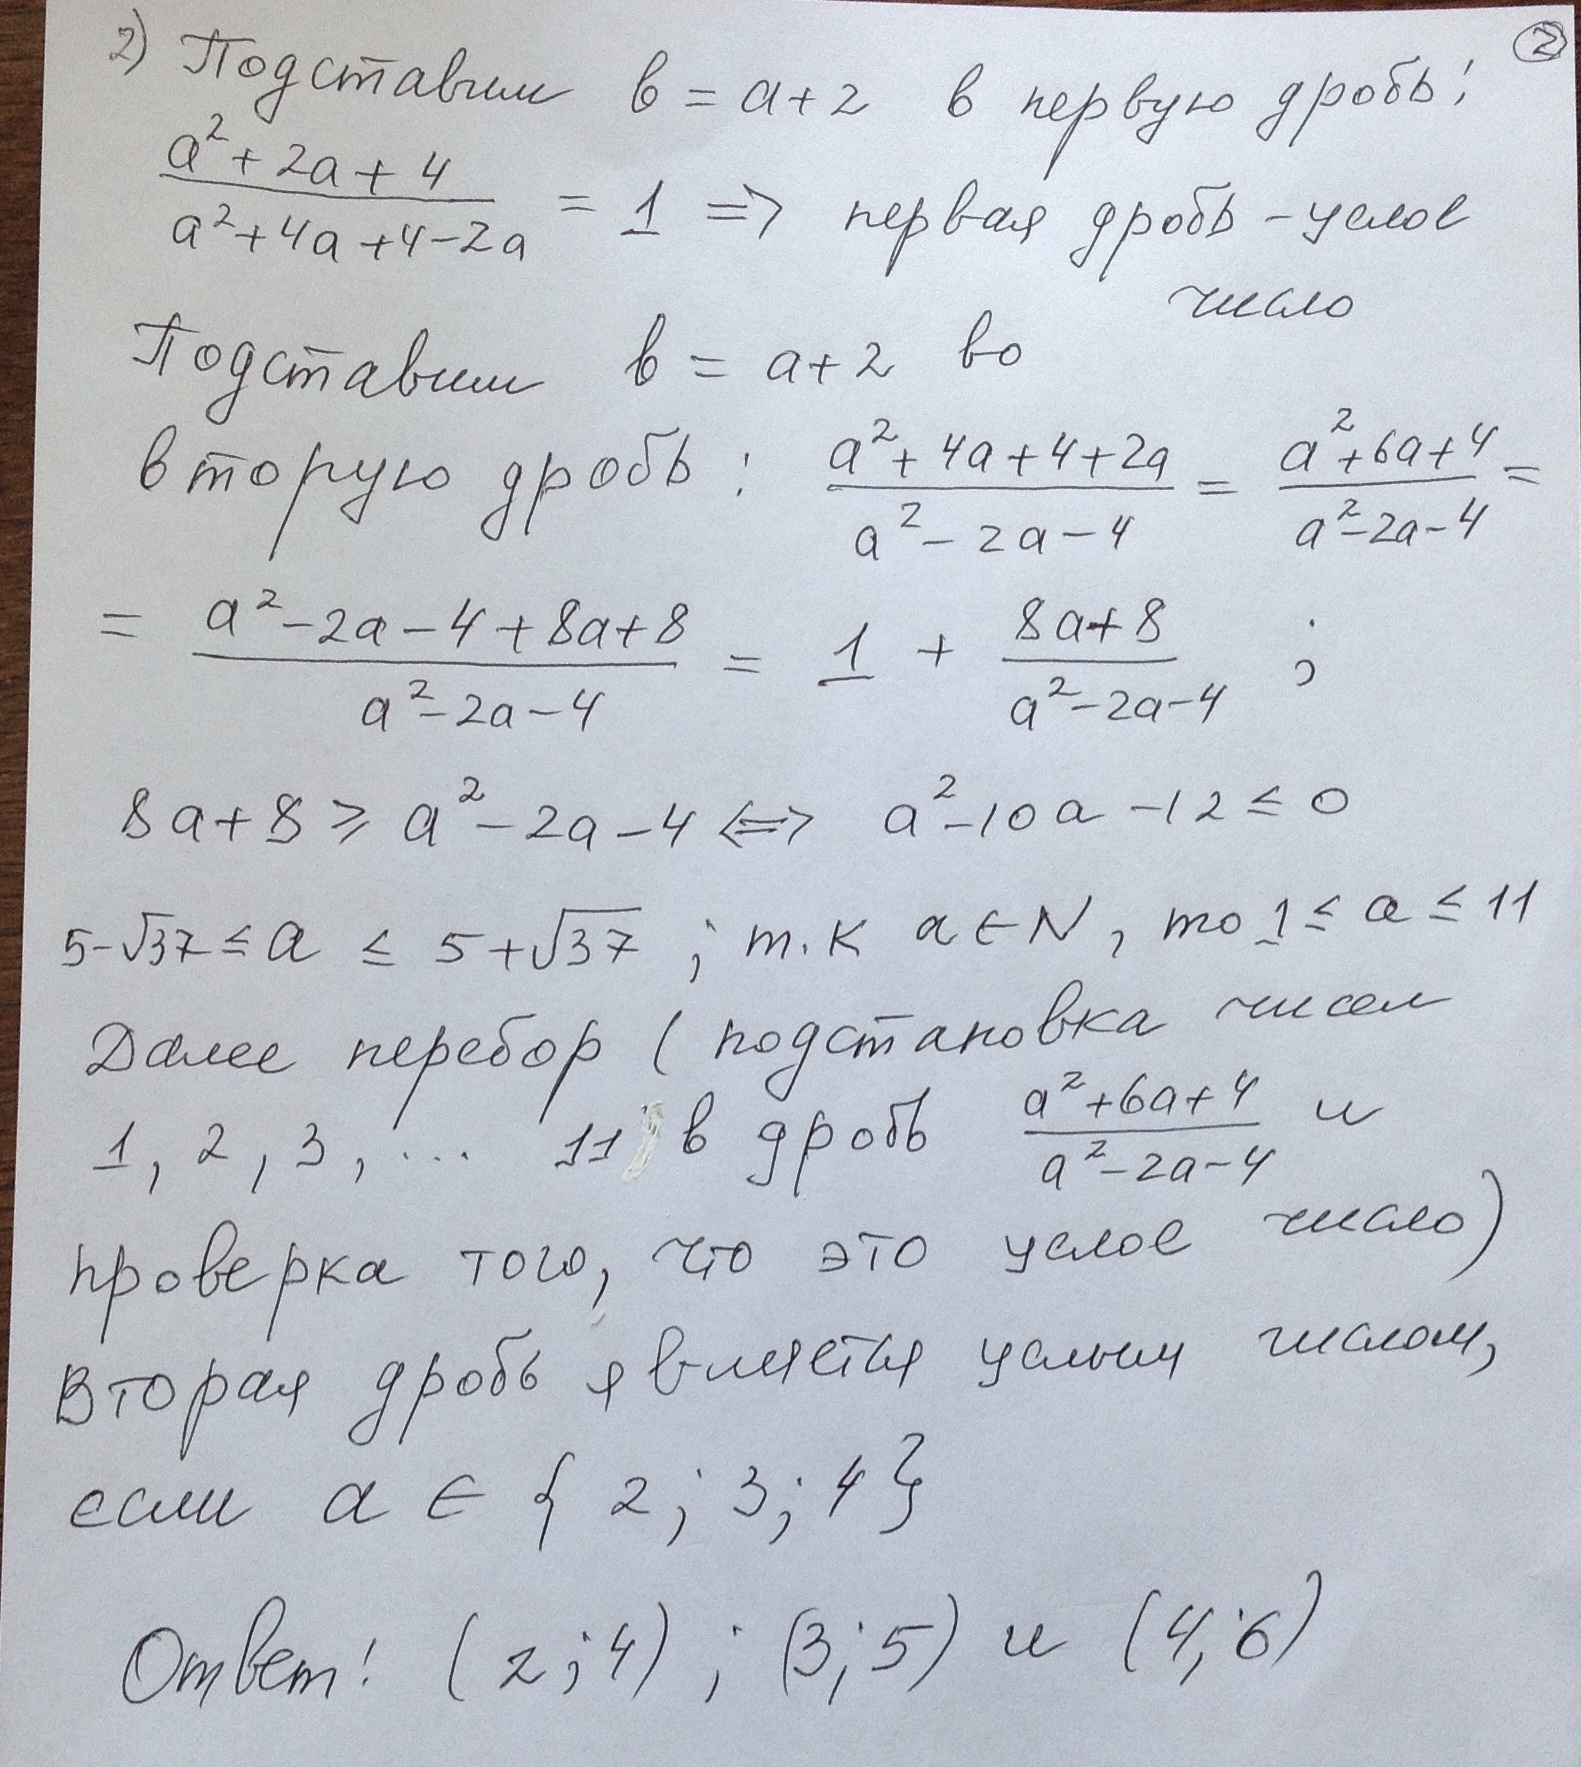 ②
2) Подставим в = a+2 в первую дробь:
(a²+2a+4)/(a²+4a+4-2a) = 1 => первая дробь - целое
число
Подставим в = a+2 во
вторую дробь: (a²+4a+4+2a)/(a²-2a-4) = (a²+6a+4)/(a²-2a-4) =
= (a²-2a-4+8a+8)/(a²-2a-4) = 1 + (8a+8)/(a²-2a-4) ;
8a+8 ≥ a²-2a-4 <=> a²-10a-12 ≤ 0
5-√37 ≤ a ≤ 5+√37 ; т.к a ∈ N, то 1 ≤ a ≤ 11
Далее перебор (подстановка чисел
1, 2, 3, ... 11 в дробь (a²+6a+4)/(a²-2a-4) и
проверка того, что это целое число)
Вторая дробь является целым числом,
если a ∈ {2; 3; 4}
Ответ: (2;4) ; (3;5) и (4;6)